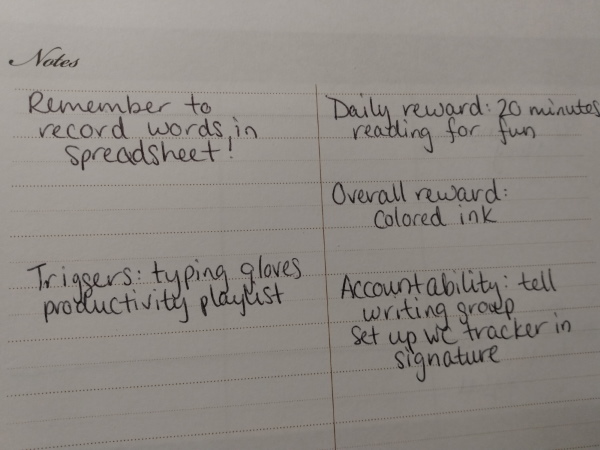 Notes
Remember to
record words in
spreadsheet!
Triggers: typing gloves
productivity playlist
Daily reward: 20 minutes
reading for fun
Overall reward:
colored ink
Accountability: tell
writing group
set up wc tracker in
signature